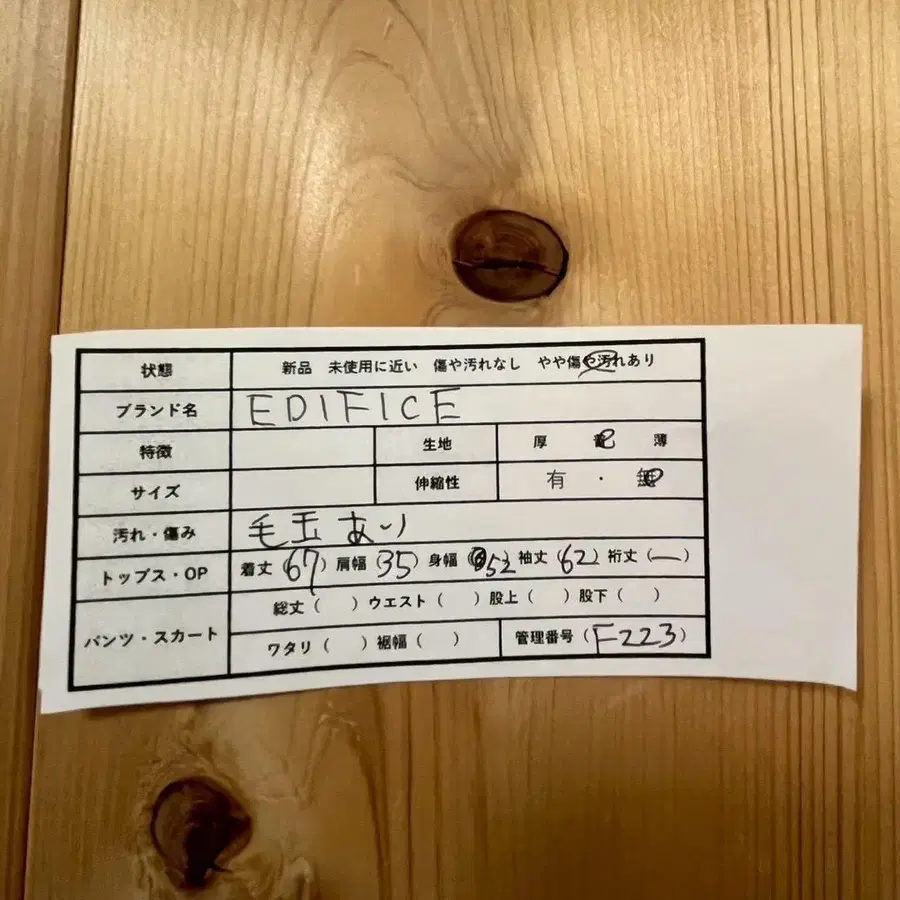 状態 新品 未使用に近い 傷や汚れなし やや傷や汚れあり
ブランド名 EDIFICE
特徴 生地 厚 薄
サイズ 伸縮性 有 ・ 無
汚れ・傷み 毛玉あり
トップス・OP 着丈(67) 肩幅(35) 身幅(52) 袖丈(62) 裄丈(ー)
パンツ・スカート 総丈( ) ウエスト( ) 股上( ) 股下( )
ワタリ( ) 裾幅( ) 管理番号(F223)